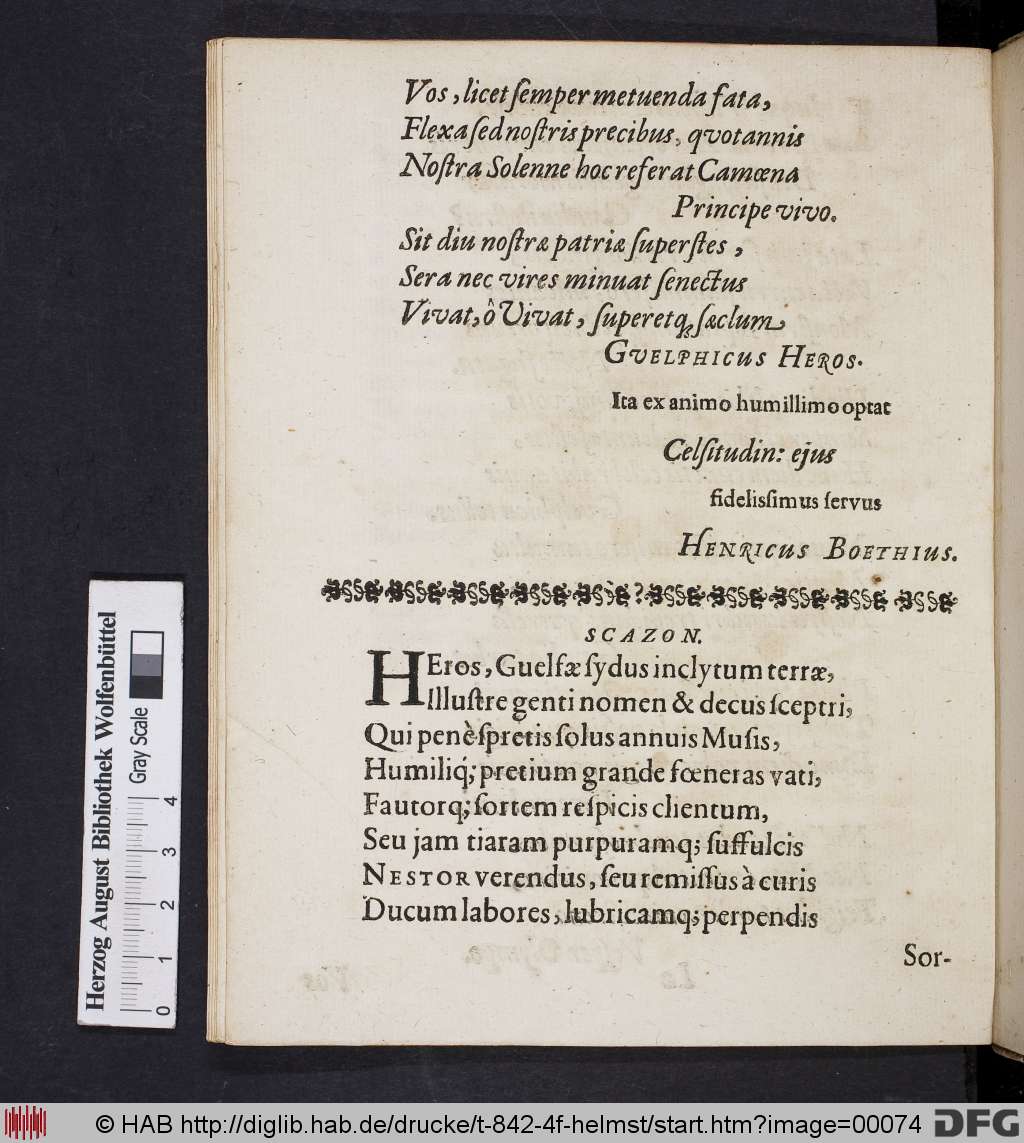 Vos, licet ſemper metuenda fata,
Flexa ſed noſtris precibus, qvotannis
Noſtra Solenne hoc referat Camœna
Principe vivo.
Sit diu noſtræ patriæ ſuperſtes,
Sera nec vires minuat ſenectus
Vivat, ô Vivat, ſuperetq; ſæclum
GVELPHICUS HEROS.
Ita ex animo humillimo optat
Celſitudin: ejus
fideliſſimus ſervus
HENRICUS BOETHIUS.
SCAZON.
HEros, Guelfæ ſydus inclytum terræ,
Illuſtre genti nomen & decus ſceptri,
Qui penè ſpretis ſolus annuis Muſis,
Humiliq́; pretium grande fœneras vati,
Fautorq; ſortem reſpicis clientum,
Seu jam tiaram purpuramq; ſuffulcis
NESTOR verendus, ſeu remiſſus à curis
Ducum labores, lubricamq; perpendis
Sor-
Herzog August Bibliothek Wolfenbüttel
Gray Scale
0 1 2 3 4
© HAB http://diglib.hab.de/drucke/t-842-4f-helmst/start.htm?image=00074
DFG